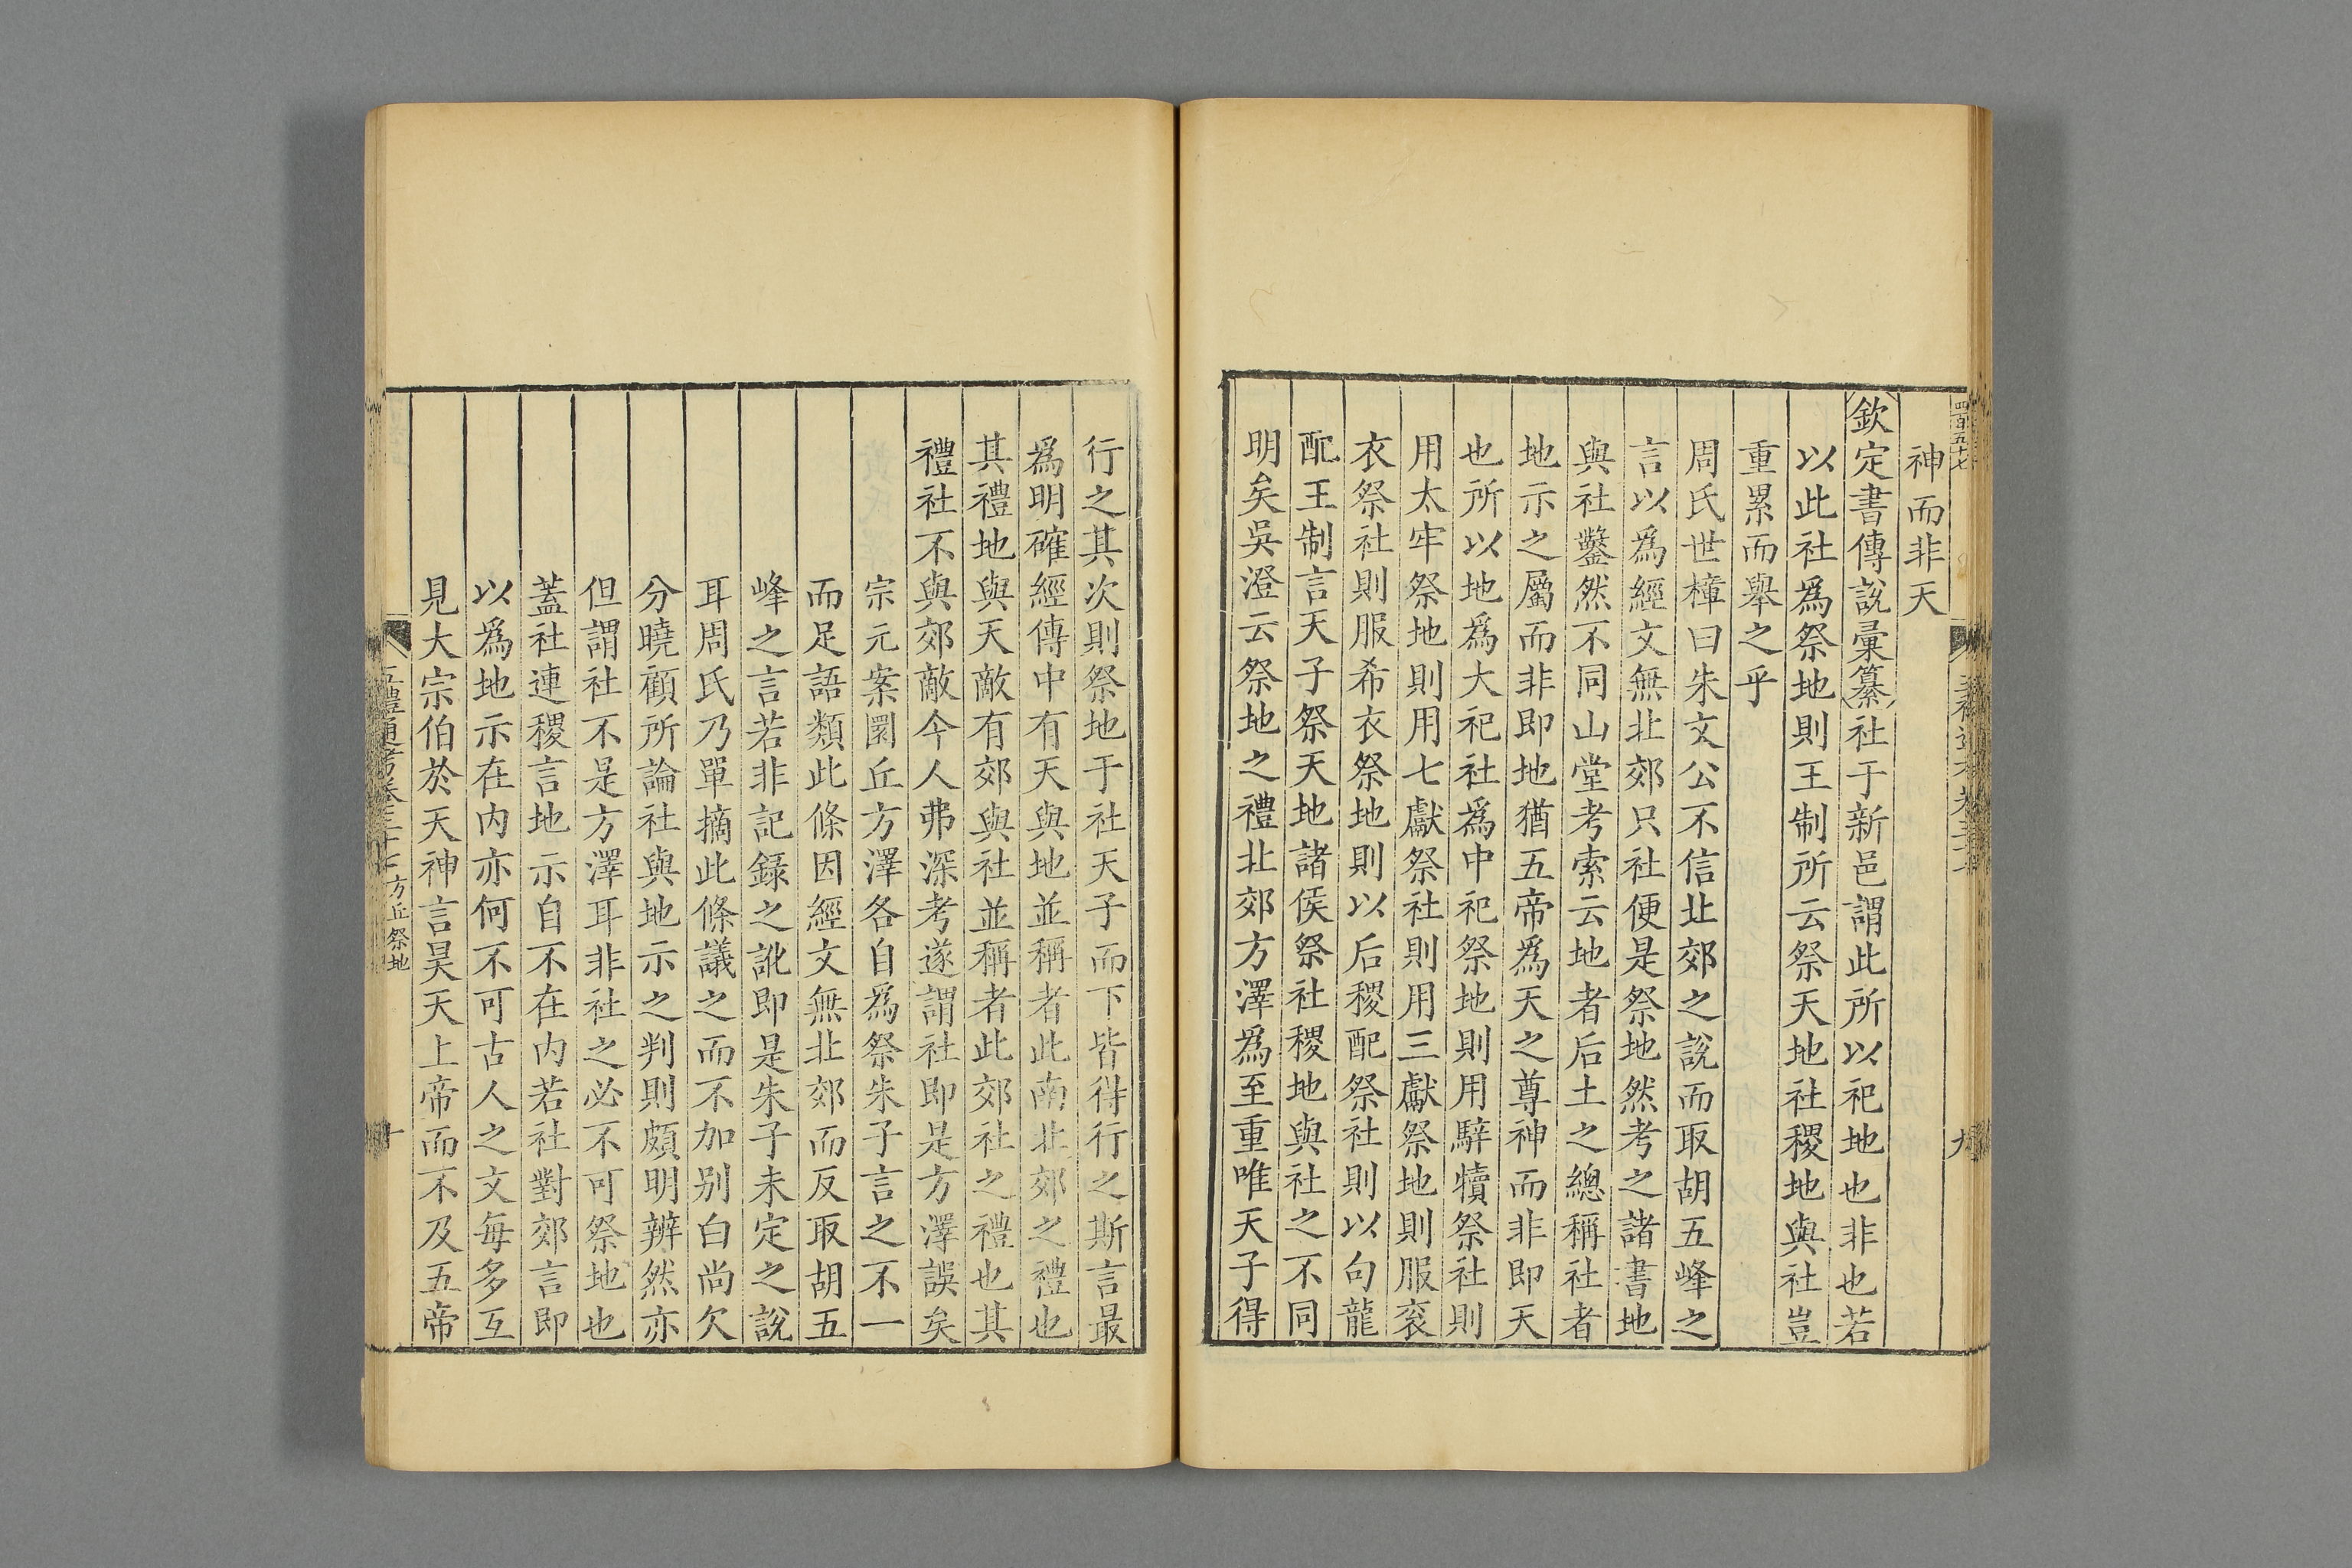 四百五十七
神而非天
欽定書傳說彙纂社于新邑謂此所以祀地也非也若
以此社爲祭地則王制所云祭天地社稷地與社豈
重累而舉之乎
周氏世樟曰朱文公不信北郊之說而取胡五峰之
言以爲經文無北郊只社便是祭地然考之諸書地
與社鑿然不同山堂考索云地者后土之總稱社者
地示之屬而非即地猶五帝爲天之尊神而非即天
也所以地爲大祀社爲中祀祭地則用騂犢祭社則
用太牢祭地則用七獻祭社則用三獻祭地則服衮
衣祭社則服希衣祭地則以后稷配祭社則以句龍
配王制言天子祭天地諸侯祭社稷地與社之不同
明矣吳澄云祭地之禮北郊方澤爲至重唯天子得
九
行之其次則祭地于社天子而下皆得行之斯言最
爲明確經傳中有天與地並稱者此南北郊之禮也
其禮地與天敵有郊與社並稱者此郊社之禮也其
禮社不與郊敵今人弗深考遂謂社即是方澤誤矣
宗元案圜丘方澤各自爲祭朱子言之不一
而足語類此條因經文無北郊而反取胡五
峰之言若非記錄之訛即是朱子未定之說
耳周氏乃單摘此條議之而不加别白尚欠
分曉顧所論社與地示之判則頗明辨然亦
但謂社不是方澤耳非社之必不可祭地也
蓋社連稷言地示自不在內若社對郊言即
以爲地示在內亦何不可古人之文每多互
見大宗伯於天神言昊天上帝而不及五帝
五禮通考卷三十七方丘祭地
十